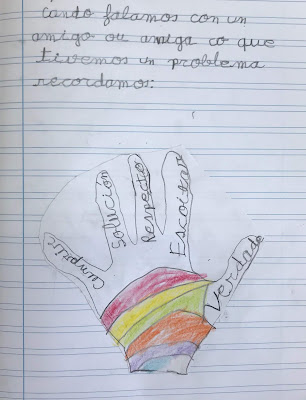 cando falamos con un
amigo ou amiga co que
tivemos un problema
recordamos:
Cumprir
Solución
Respecto
Escoitar
Verdade